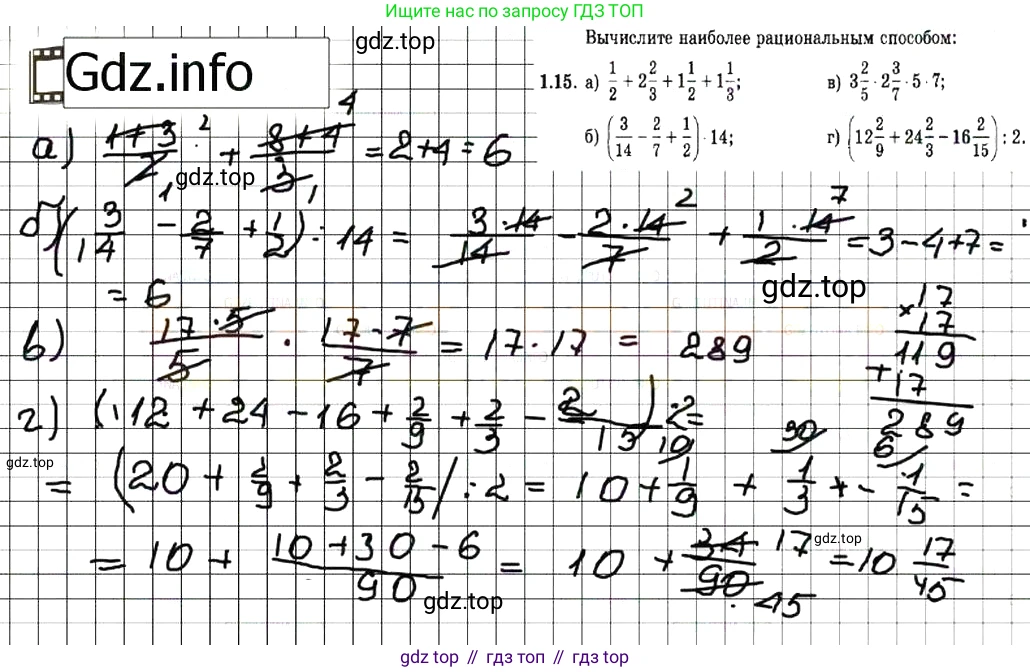 Ищите нас по запросу ГДЗ ТОП
gdz.top
Gdz.info
Вычислите наиболее рациональным способом:
1.15. а) 1/2 + 2 2/3 + 1 1/2 + 1 1/3; в) 3 2/5 · 2 3/7 · 5 · 7;
б) (3/14 − 2/7 + 1/2) · 14; г) (12 2/9 + 24 2/3 − 16 2/15) : 2.
а) (1+3)/2 + (8+4)/3 = 2+4 = 6
gdz.top
б) (3/14 − 2/7 + 1/2) : 14 = 3·14/14 − 2·14/7 + 1·14/2 = 3−4+7 =
= 6
gdz.top
в) 17·5/5 · 17·7/7 = 17·17 = 289
17
× 17
119
+ 17
289
г) (12 + 24 − 16 + 2/9 + 2/3 − 2/15) : 2 =
gdz.top
= (20 + 2/9 + 2/3 − 2/15) : 2 = 10 + 1/9 + 1/3 + − 1/15 =
= 10 + (10+30−6)/90 = 10 + 34/90 17 45 = 10 17/45
gdz.top
gdz.top
gdz top // гдз топ // gdz.top